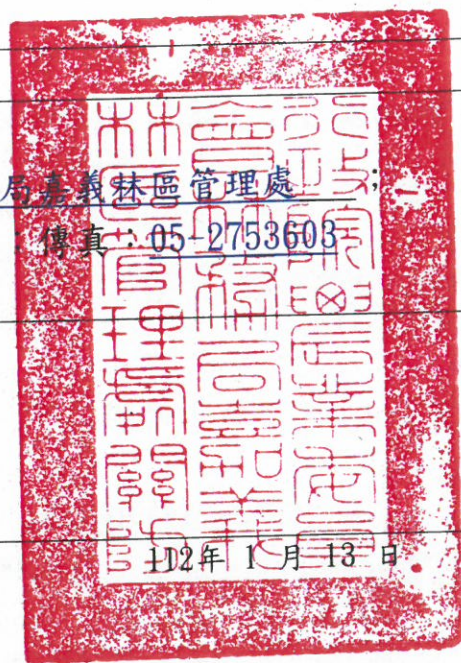 局嘉義林區管理處；
：傳真：05-2753603
112年 1 月 13 日
行政院農業委員
會林務局嘉義
林區管理處關防